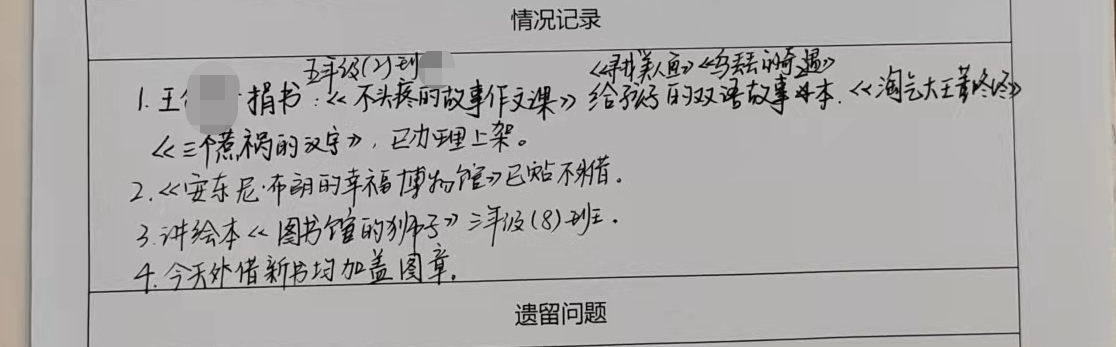 情况记录
五年级(2)班 《寻找美人鱼》《乌丢丢的奇遇》
1. 王 捐书:《不头疼的故事作文课》给孩子的双语故事 本.《淘气大王董咚咚》
《三个惹祸的汉字》,已办理上架。
2.《安东尼·布朗的幸福博物馆》已贴不外借.
3. 讲绘本《图书馆的狮子》三年级(8)班.
4. 今天外借新书均加盖图章.
遗留问题